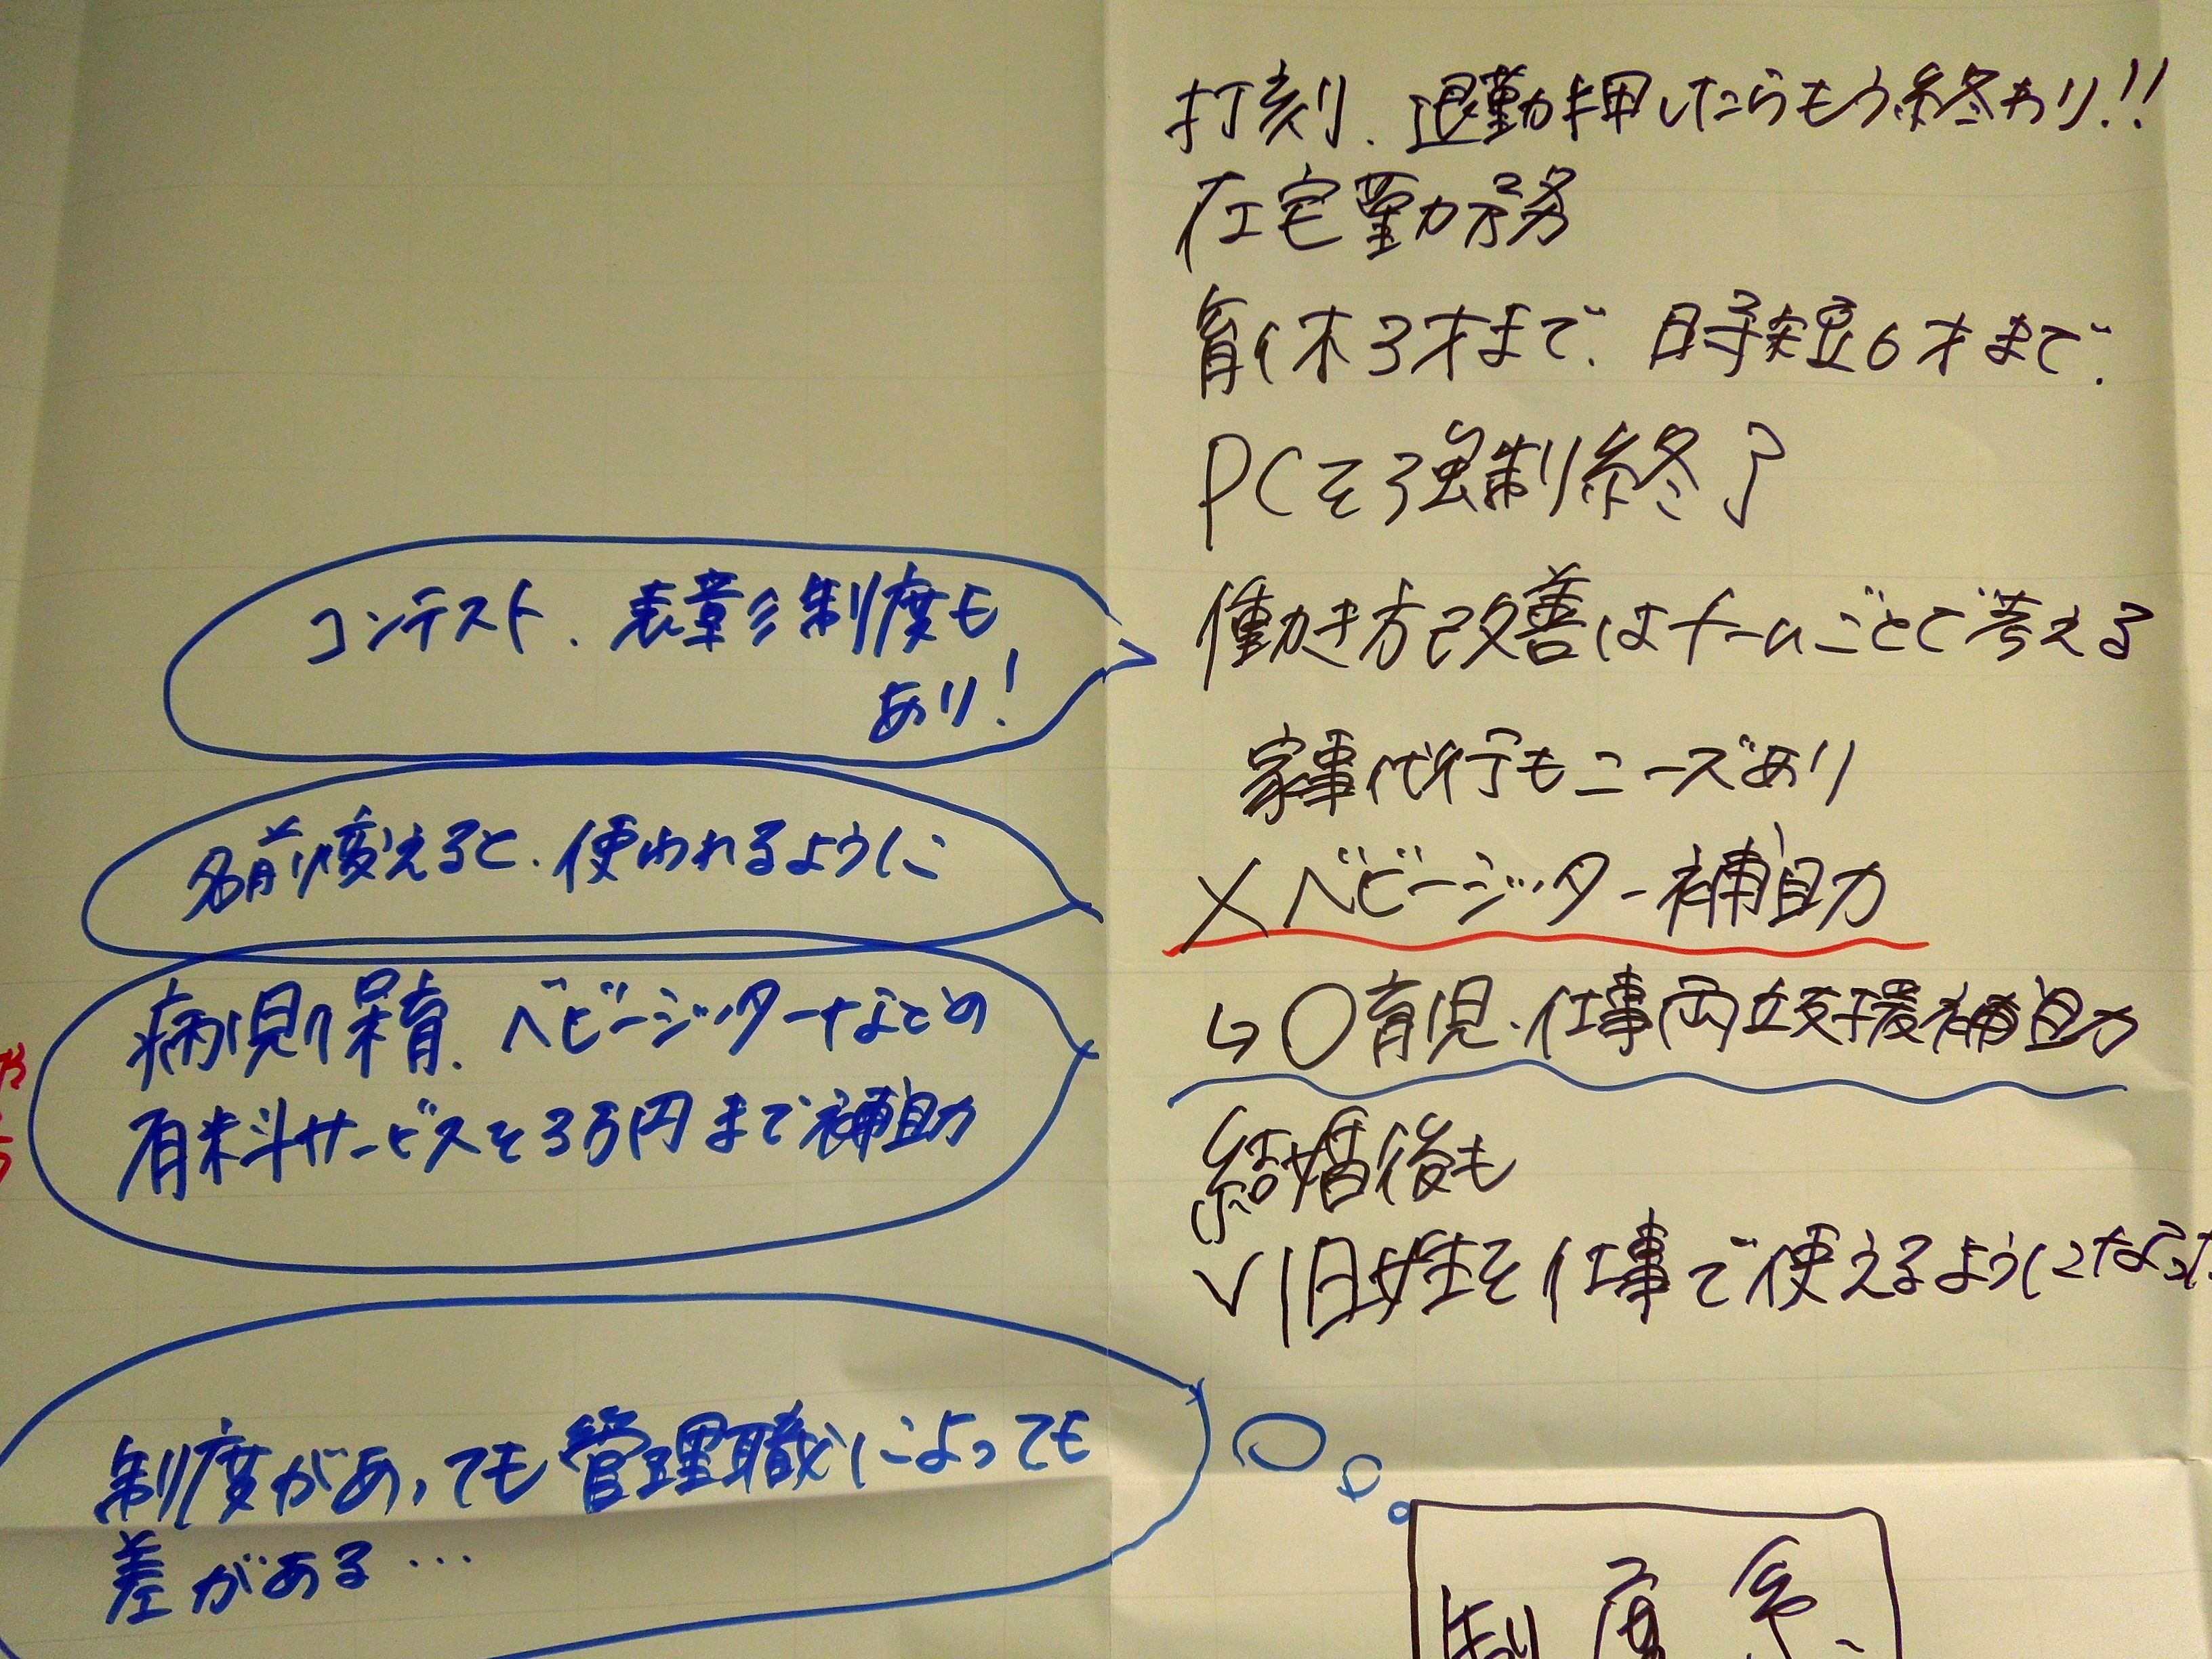 打刻、退勤押したらもう終わり!!
在宅勤務
育休3才まで、時短6才まで.
PCを強制終了
働き方改善はチームごとで考える
コンテスト、表彰制度も
あり!
家事代行もニーズあり
名前変えると、使われるように
×ベビーシッター補助
↳○育児・仕事両立支援補助
病児保育、ベビーシッターなどの
有料サービスを3万円まで補助
結婚後も
✓旧姓を仕事で使えるようになった
制度があっても管理職によっても
差がある…
制度系